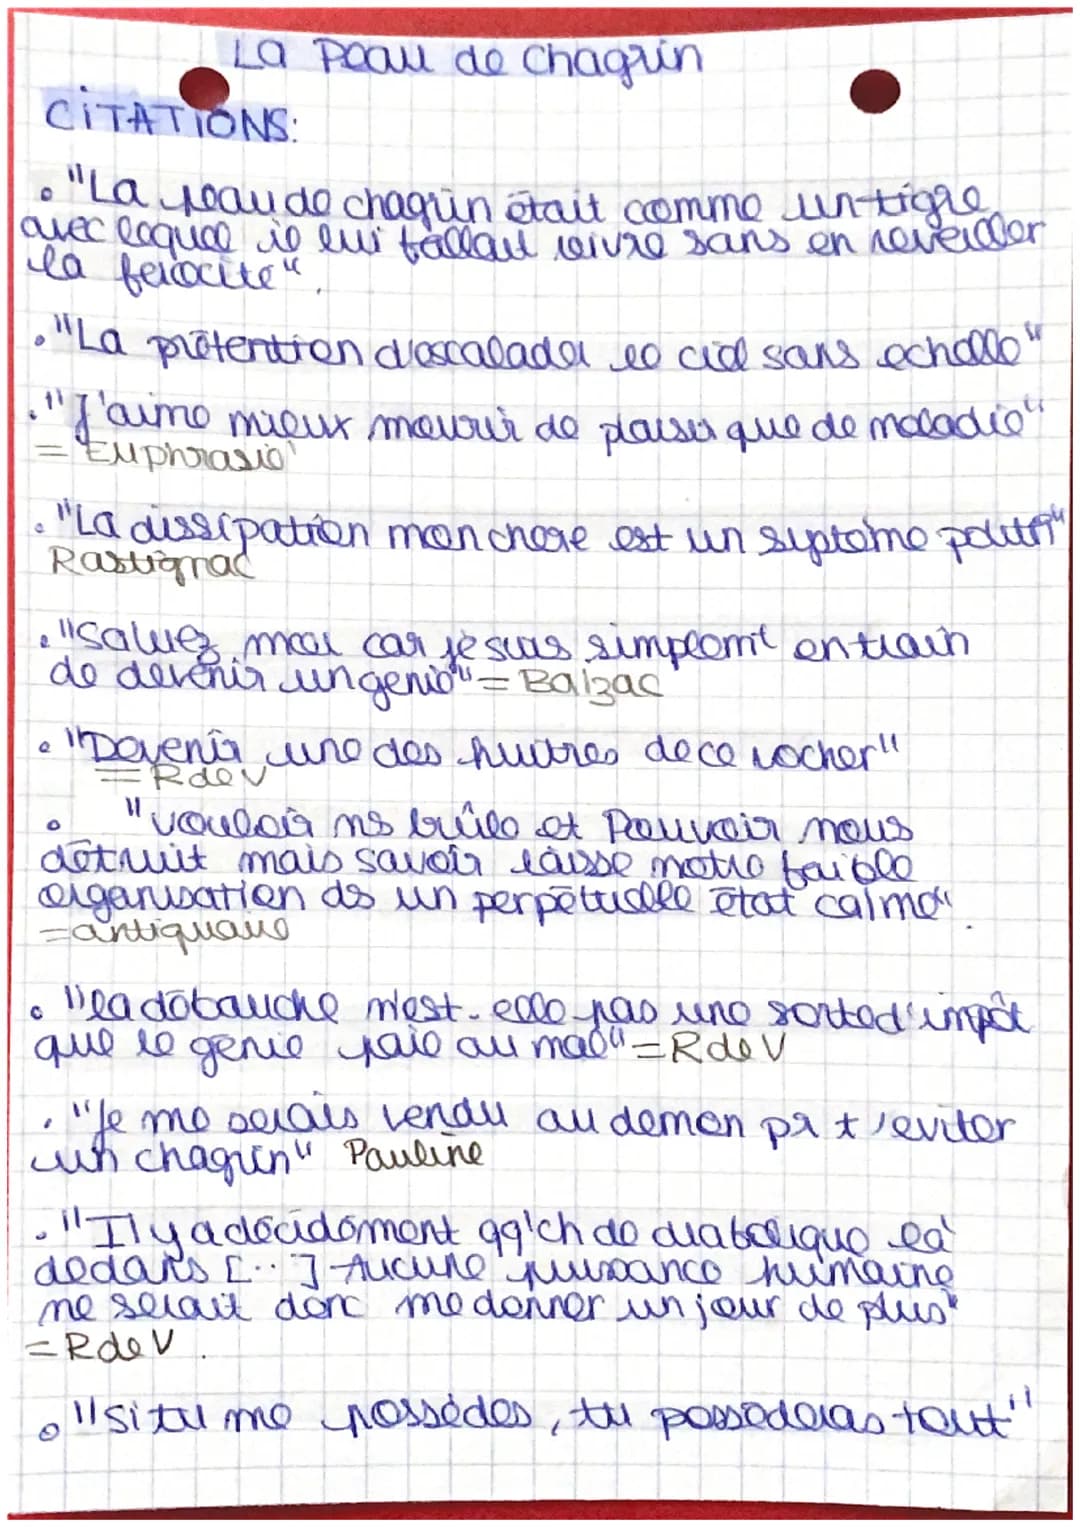 La Peau de chagrin
CITATIONS:
• "La peau de chagrin était comme un tigre
avec lequel il lui fallait vivre sans en reveiller
la ferocité".
• "La prétention d'escalader le ciel sans echelle"
• "J'aime mieux mourir de plaisir que de maladie"
= Euphrasie
• "La dissipation mon chere est un syptome polit
Rastignac
• "Saluez moi car je suis simplemt entrain
de devenir un genie" = Balzac
• "Devenir une des huitres de ce rocher"
= R de V
• "vouloir ns brûle et Pouvoir nous
détruit mais savoir laisse notre faible
organisation ds un perpétuelle état calme".
= antiquaire
• "la débauche n'est-elle pas une sorte d'impôt
que le genie paie au mal" = R de V
• "Je me serais vendu au demon pr t'eviter
un chagrin" Pauline
• "Il y a décidément qq'ch de diabolique là
dedans [...] Aucune puissance humaine
ne serait donc me donner un jour de plus"
= R de V.
• "si tu me possédes, tu possederas tout"